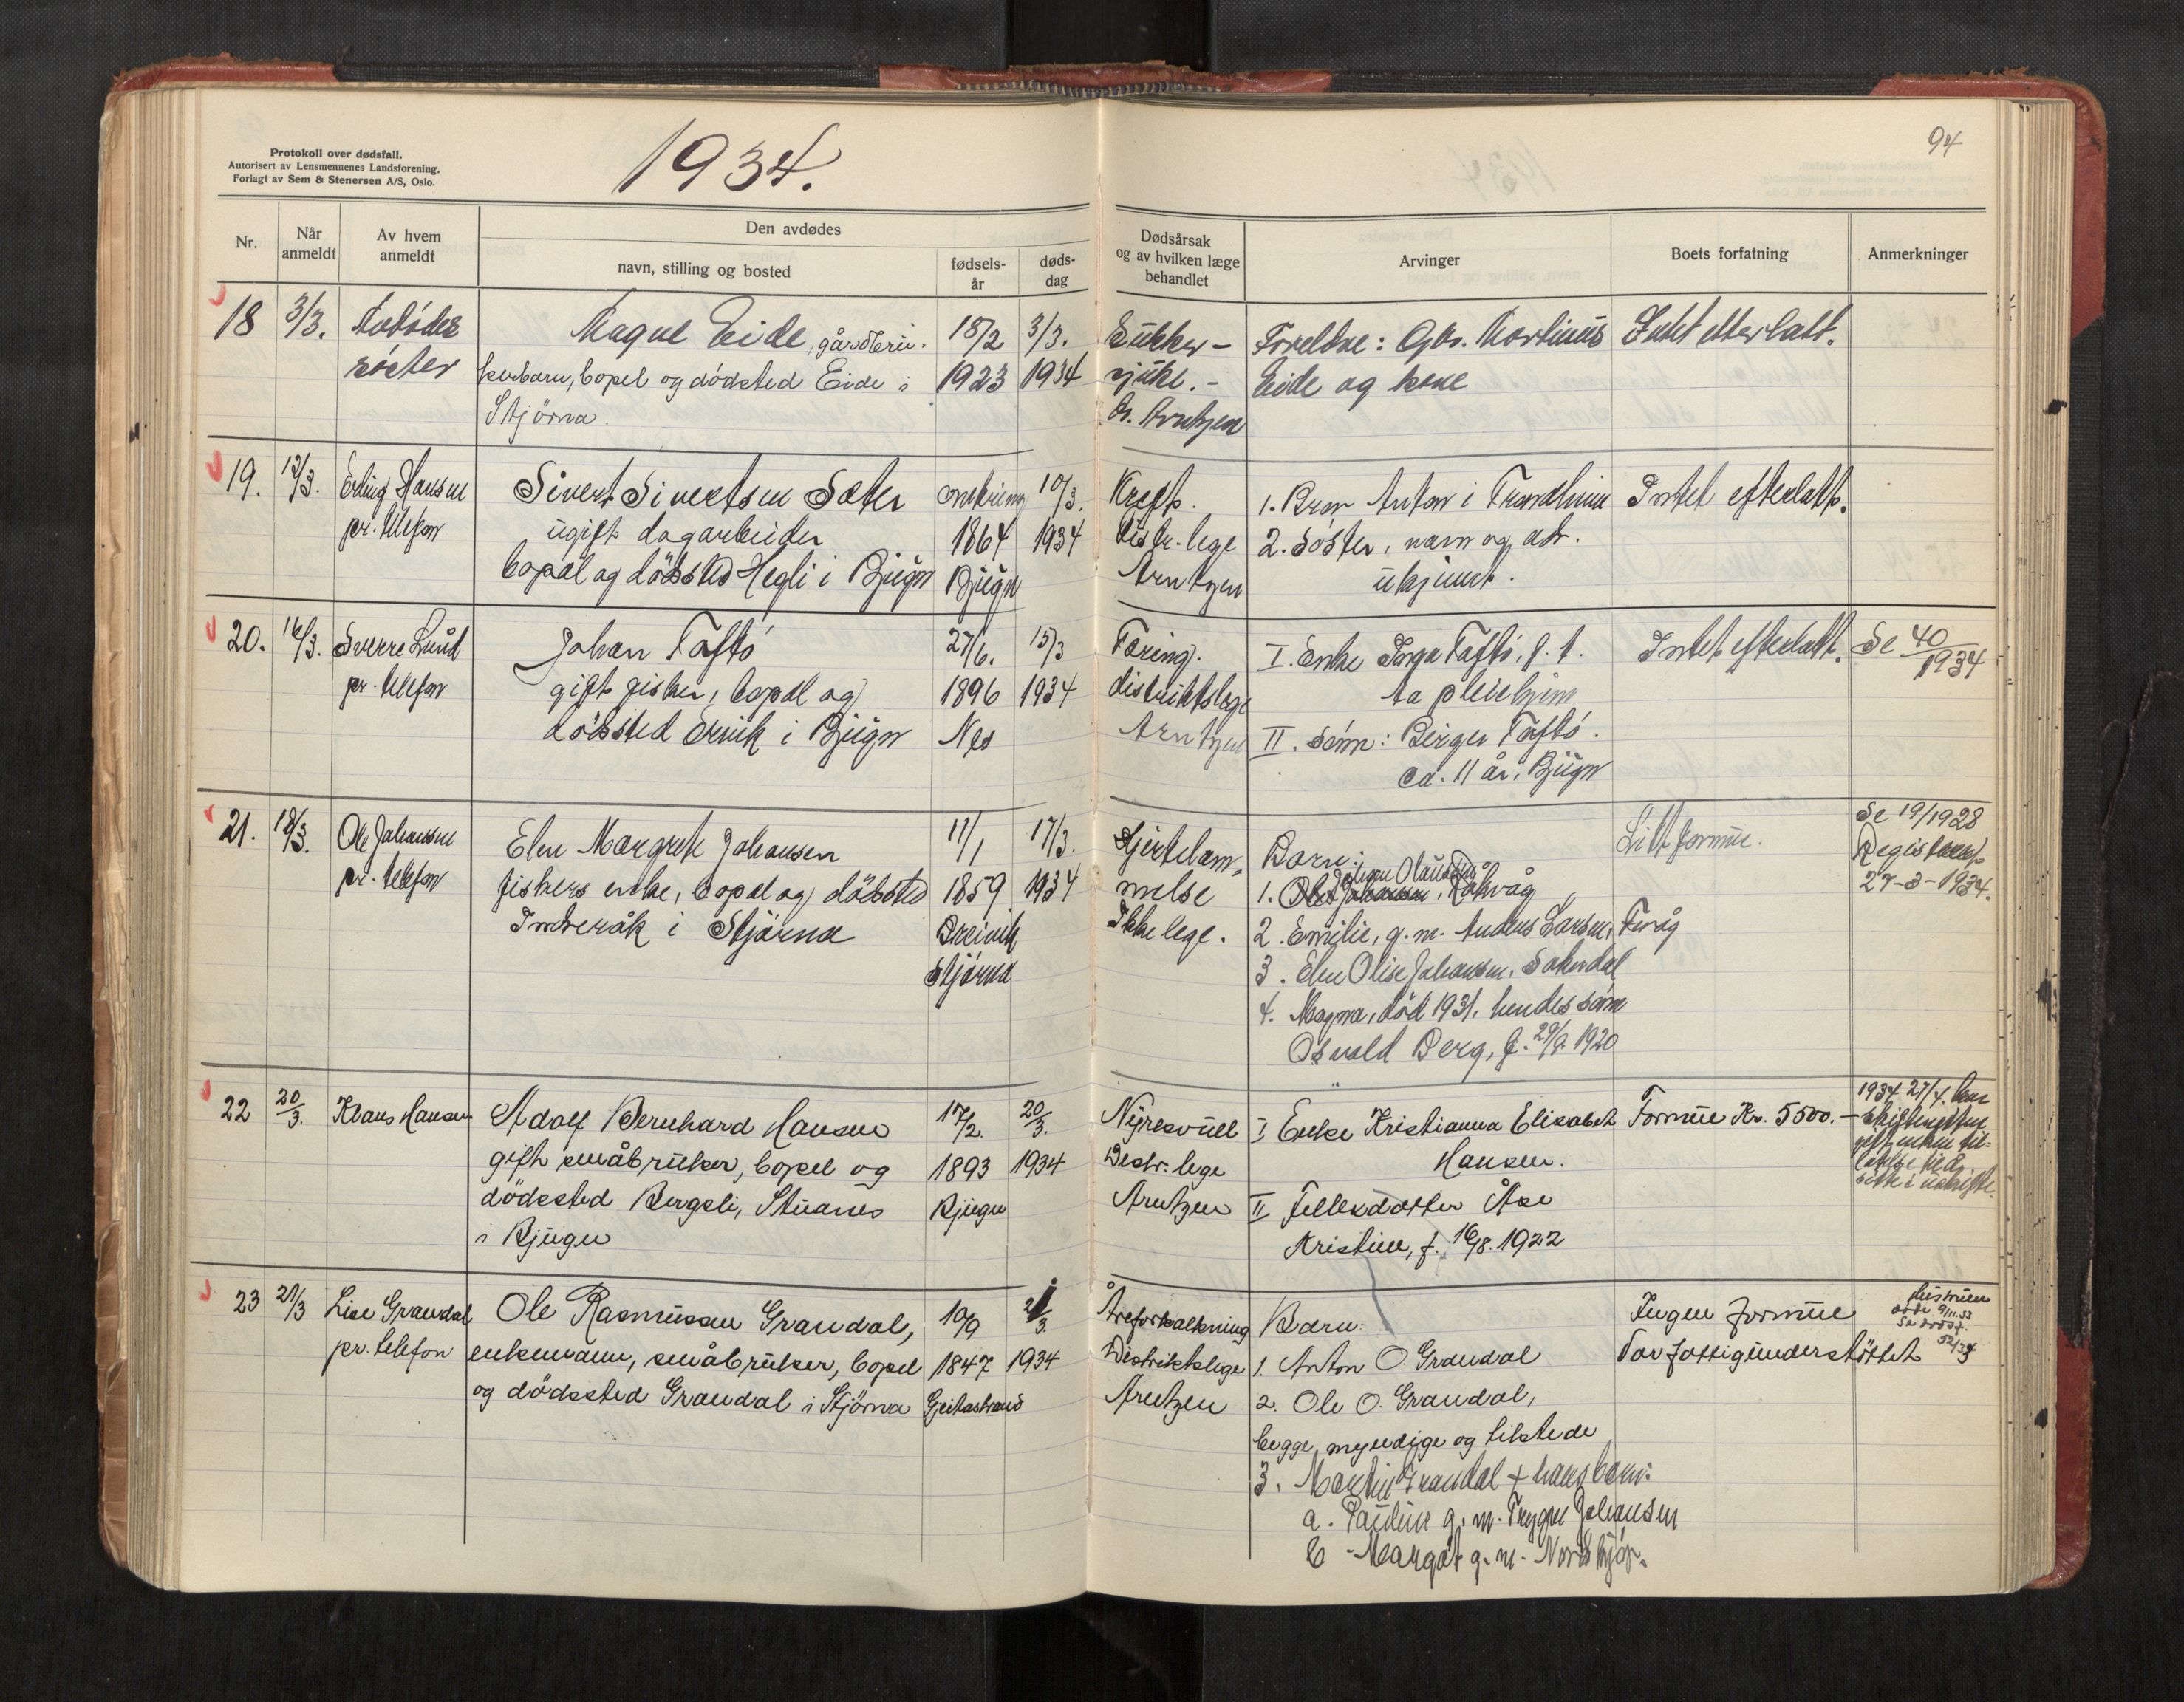 94
Protokoll over dødsfall.
Autorisert av Lensmennenes Landsforening.
Forlagt av Sem & Stenersen A/S, Oslo.
1934.
Nr.
Når anmeldt
Av hvem anmeldt
Den avdødes
navn, stilling og bosted
fødsels-år
døds-dag
Dødsårsak
og av hvilken læge
behandlet
Arvinger
Boets forfatning
Anmerkninger
18
3/3.
Avdødes
søster
Magne Eide, gårdbru-
kerbarn, bopel og dödsted Eide i
Stjörna
18/2
1923
3/3.
1934
Sukker-
sjuke.-
Dr. Arntzen
Foreldre: Gbr. Martinus
Eide og kone
Intet etterlatt.
19.
12/3.
Erling Hansen
pr. telefon
Sivert Sivertsen Sæter
ugift dagarbeider
bopæl og dödssted Hegli i Bjugn
omkring
1864
Bjugn
10/3.
1934
Kreft.
Distr. lege
Arntzen
1. Bror Anton i Trondheim
2. Söster, navn og adr.
ukjendt.
Intet efterlatt.
20.
16/3.
Sverre Lund
pr. telefon
Johan Taftö
gift fisker, bopæl og
dödssted Ervik i Bjugn
27/6.
1896
Nes
15/3
1934
Tæring.
distriktslege
Arntzen
I. Enke Inga Taftö, f. t.
ta pleiehjem
II. Sönn: Birger Taftö.
ca. 11 år, Bjugn
Intet efterlatt.
Se 40/1934
21.
18/3.
Ole Johansen
pr. telefon
Elen Margrete Johansen
fiskers enke, bopæl og dödssted
Inderåk i Stjörna
11/1
1859
Breivik
Stjörna
17/3.
1934
Hjertelam-
melse
Ikke lege.
Barn:
1. Råkvåg
2. Emilie, g. m. Anders Larsen, Fevåg
3. Elen Olise Johansen, Sakndal
4. Magna, död 1931, hendes sönn
Osvald Berg, f. 29/9 1920
Litt formue.
Se 19/1928
Registrert
27-3-1934.
22
20/3.
Klaus Hansen
Adolf Bernhard Hansen
gift småbruker, bopel og
dödssted Bergsli, Stuanes
i Bjugn
17/2.
1893
Bjugn
20/3.
1934
Nyresvull
Distr. lege
Arntzen
I Enke Kristianna Elisabet
Hansen.
II Fellesdatter Åse
Kristine, f. 16/8. 1922
Formue Kr. 5500.-
1934 27/4.
23
21/3
Lise Grandal
pr. telefon
Ole Rasmussen Grandal,
enkemann, småbruker, bopel
og dödssted Grandal i Stjörna
10/9
1847
Geitastrand
21/3.
1934
Åreforkalkning
Distriktslege
Arntzen
Barn:
1. Anton O. Grandal
2. Ole O. Grandal,
begge myndige og tilstede
3. Martin Grandal + hans barn:
a. Pauline g. m. Trygve Johansen
b - Margot g. m.
Ingen formue
Var fattigunderstöttet